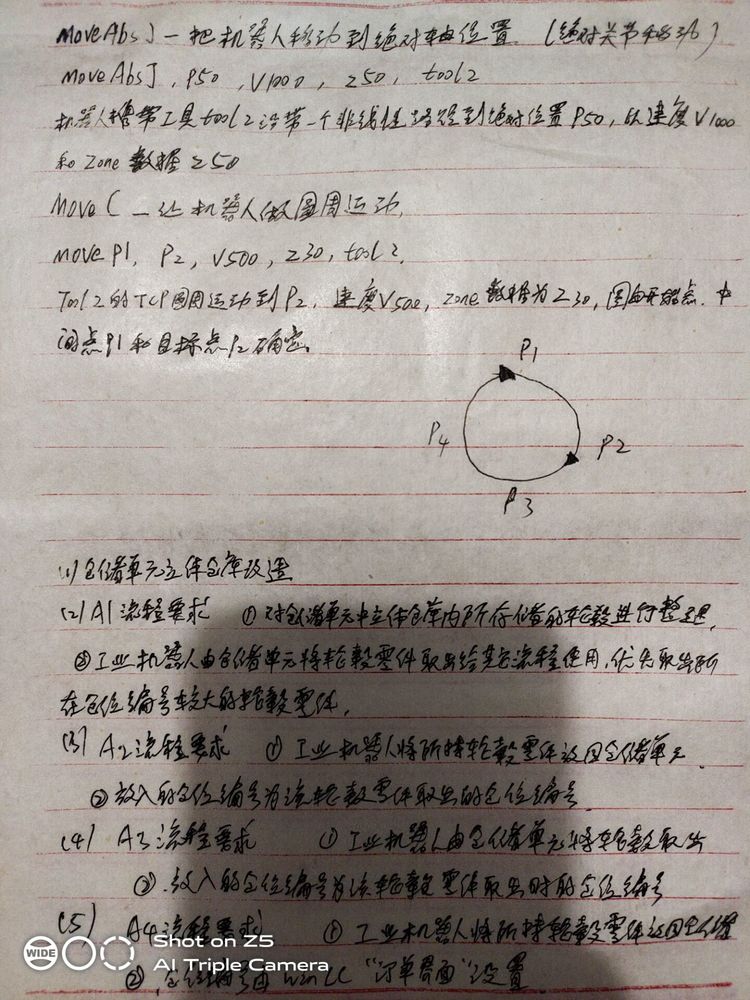 MoveAbsJ — 把机器人移动到绝对轴位置 (绝对关节移动)
MoveAbsJ, P50, V1000, Z50, tool2
机器人携带工具tool2沿着一个非线性路径到绝对位置P50, 以速度V1000
和Zone数据Z50
Move C — 让机器人做圆周运动,
move P1, P2, V500, Z30, tool2,
Tool2的TCP圆周运动到P2, 速度V500, Zone数据为Z30, 圆由开始点, 中
间点P1和目标点P2确定。
P1
P4
P2
P3
(1) 仓储单元立体仓库改造
(2) A1流程要求 ①对仓储单元中立体仓库内所存储的轮毂进行整理,
②工业机器人由仓储单元将轮毂零件取出给其它流程使用, 优先取出所
在仓位编号较大的轮毂零件,
(3) A2流程要求 ①工业机器人将所持轮毂零件放回仓储单元
②放入的仓位编号为该轮毂零件取出的仓位编号
(4) A3流程要求 ①工业机器人由仓储单元将轮毂取出
②放入的仓位编号为该轮毂零件取出时的仓位编号
(5) A4流程要求 ①工业机器人将所持轮毂零件放回仓储
②仓位编号由WinCC“订单界面”设置
WIDE
Shot on Z5
AI Triple Camera